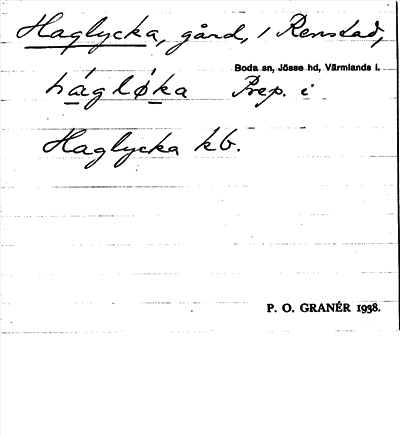 Haglycka, gård, i Renstad,
Boda sn, Jösse hd, Värmlands l.
hágløka Prep. i
Haglycka kb.
P. O. GRANÉR 1938.